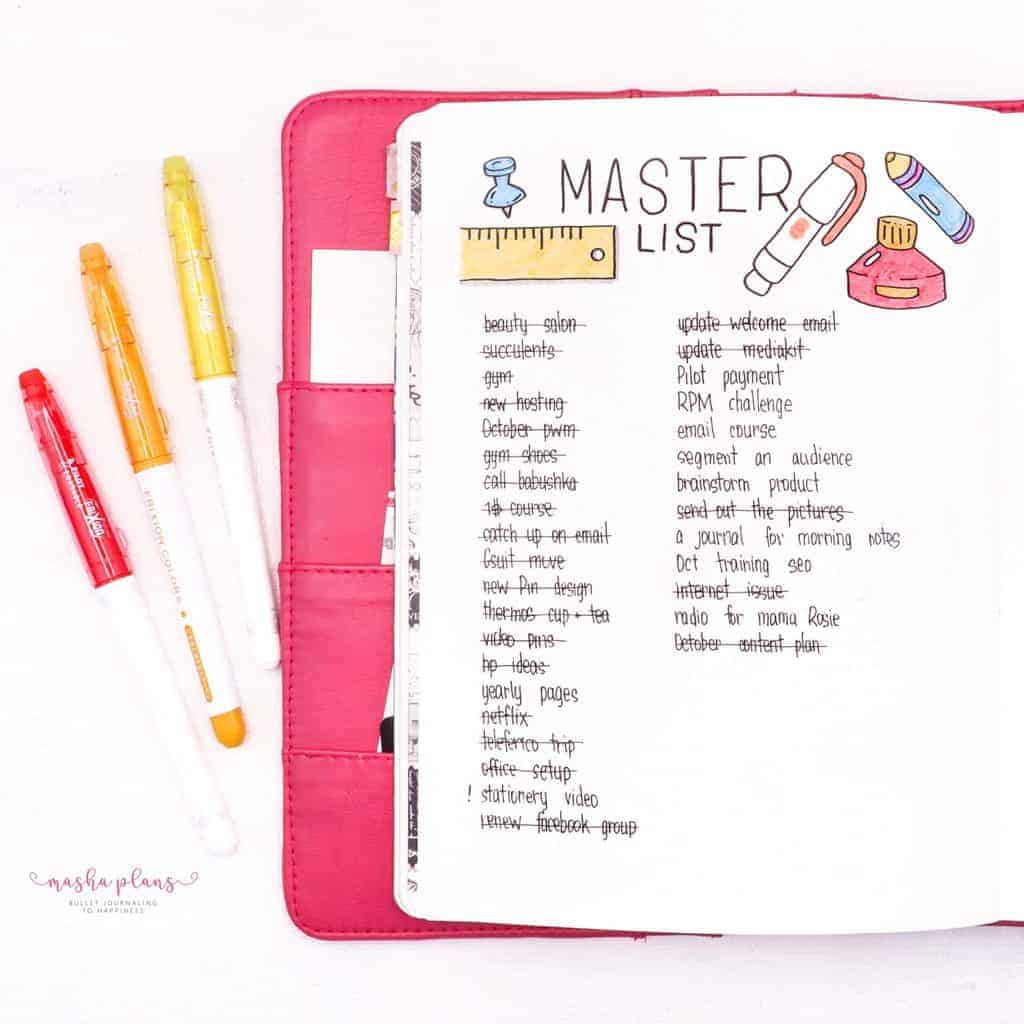 MASTER
LIST
beauty salon
succulents
gym
new hosting
October pwm
gym shoes
call babyshka
1$ course
catch up on email
Gsuit move
new Pin design
thermos cup + tea
video pins
hp ideas
yearly pages
netflix
teleferico trip
office setup
! stationery video
renew facebook group
update welcome email
update mediakit
Pilot payment
RPM challenge
email course
segment an audience
brainstorm product
send out the pictures
a journal for morning notes
Oct training seo
Internet issue
radio for mama Rosie
October content plan
PILOT
FRIXION
FRIXION COLORS
masha plans
BULLET JOURNALING
TO HAPPINESS